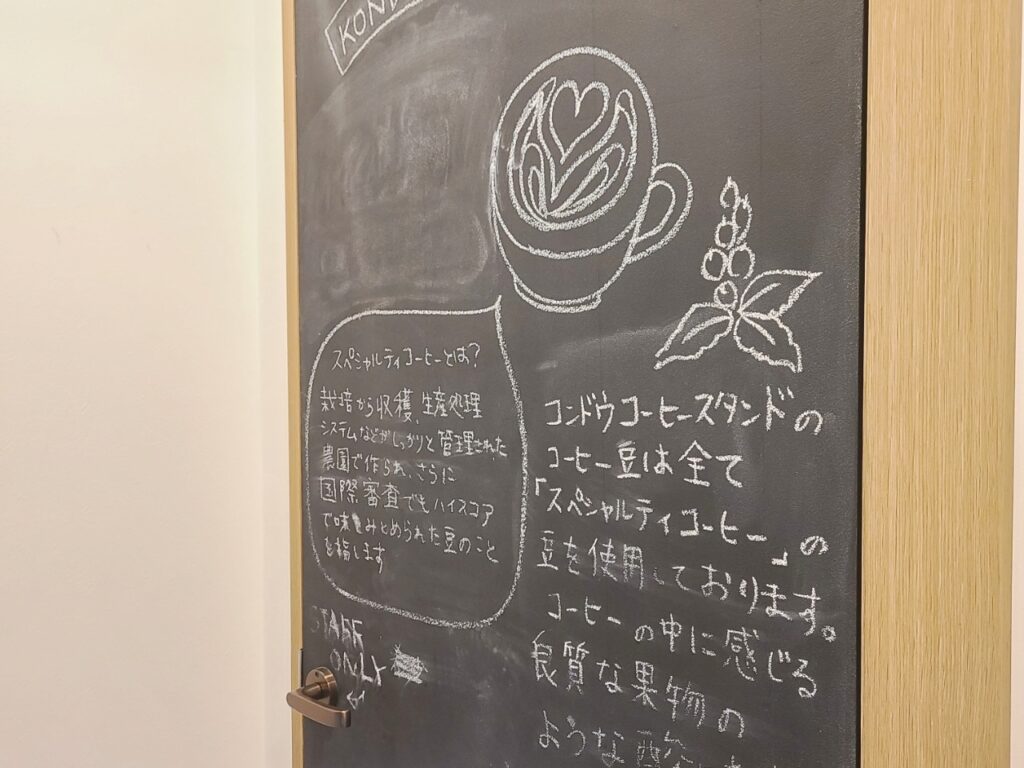 KON
スペシャルティコーヒーとは?
栽培から収穫、生産処理
システムなどがしっかりと管理された
農園で作られ、さらに
国際審査でもハイスコア
で味もみとめられた豆のこと
を指します
STAFF
ONLY
コンドウコーヒースタンドの
コーヒー豆は全て
「スペシャルティコーヒー」の
豆を使用しております。
コーヒーの中に感じる
良質な果物の
ような酸